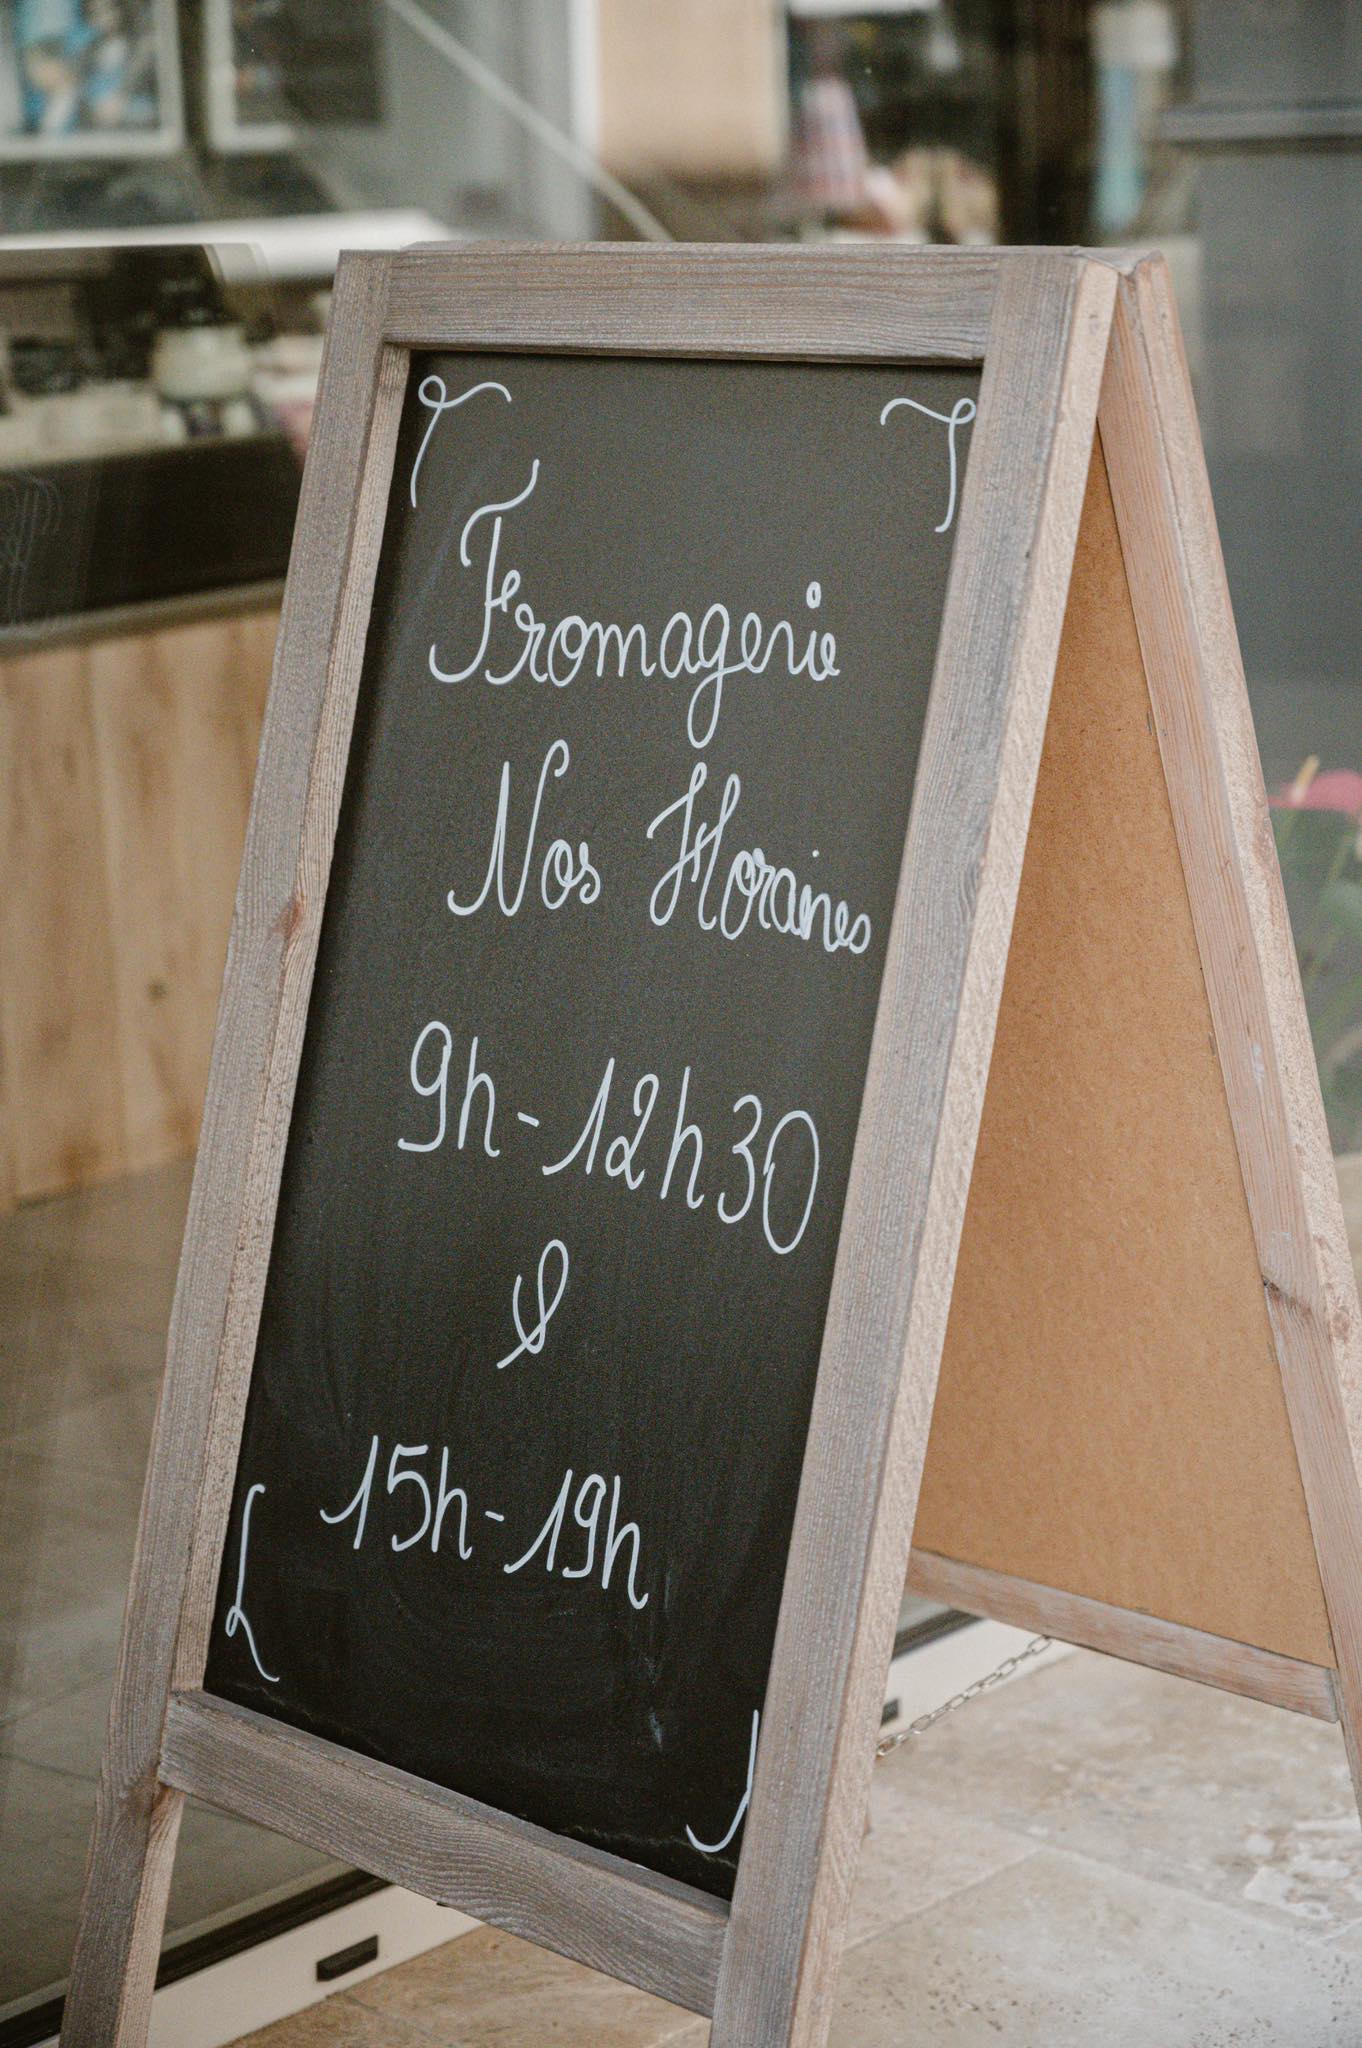 Fromagerie
Nos Horaires
9h-12h30
&
15h-19h